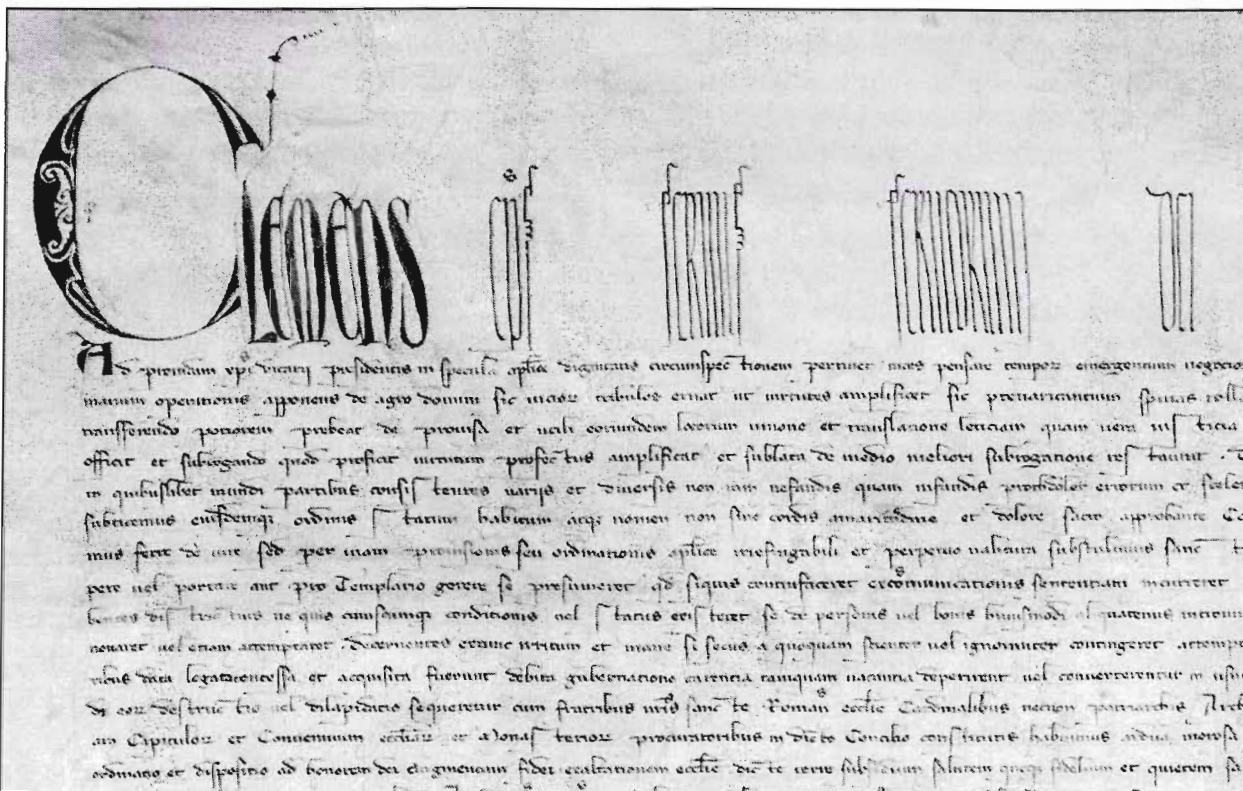 Clemens ep̄s seruus seruorum dei
Ad prouidam xpi vicarij presidentis in specula aplice dignitatis circumspectionem pertinet uices pensare tempor emergentium negocior
operationis apponens de agro domini sic uicior tribulos euellat ut uirtutes amplificet sic preuaricantium spinas toll
transferendo potiorem prebeat de prouisa et utili eorundem locorum unione et translatione leticiam quam uera iusticia
officit et subrogando quod proficit uirtutum profectus amplificat et sublata de medio meliori subrogatione restaurat
in quibuslibet mundi partibus consistentes uarijs et diuersis non tam nefandis quam infandis prohdolor errorum et sceler
eiusdemq ordinis statum habitum atq nomen non sine cordis amaritudine et dolore sacro approbante Co
mus ferre de iure sed per uiam prouisionis seu ordinationis aplice irrefragabili et perpetuo ualitura sustulimus Sanct
pere uel portare aut pro Templario gerere se presumeret qd siquis contrafaceret excommunicationis sententiam incurreret
bentes districtius ne quis cuiuscumq conditionis uel status existeret se de personis uel bonis huiusmodi aliquatenus intromi
nouaret uel etiam attemptaret decernentes extunc irritum et inane si secus a quoquam scienter uel ignoranter contingeret attempt
data legata concessa et acquisita fuerunt debita gubernatione carentia tamquam uacantia deperirent uel conuerterentur in usus
di eor destructio uel dilapidatio sequeretur cum fratribus nris sancte Roman ecclie Cardinalibus necnon patriarchis Arch
Capitulor et Conuentuum ecclar et Monasterior procuratoribus in dicto Concilio constitutis habuimus ardua morosa
ordinatio et dispositio ad honorem dei augmentum fidei exaltationem ecclie dicte terre subsidium salutem quoq fidelium et quietem